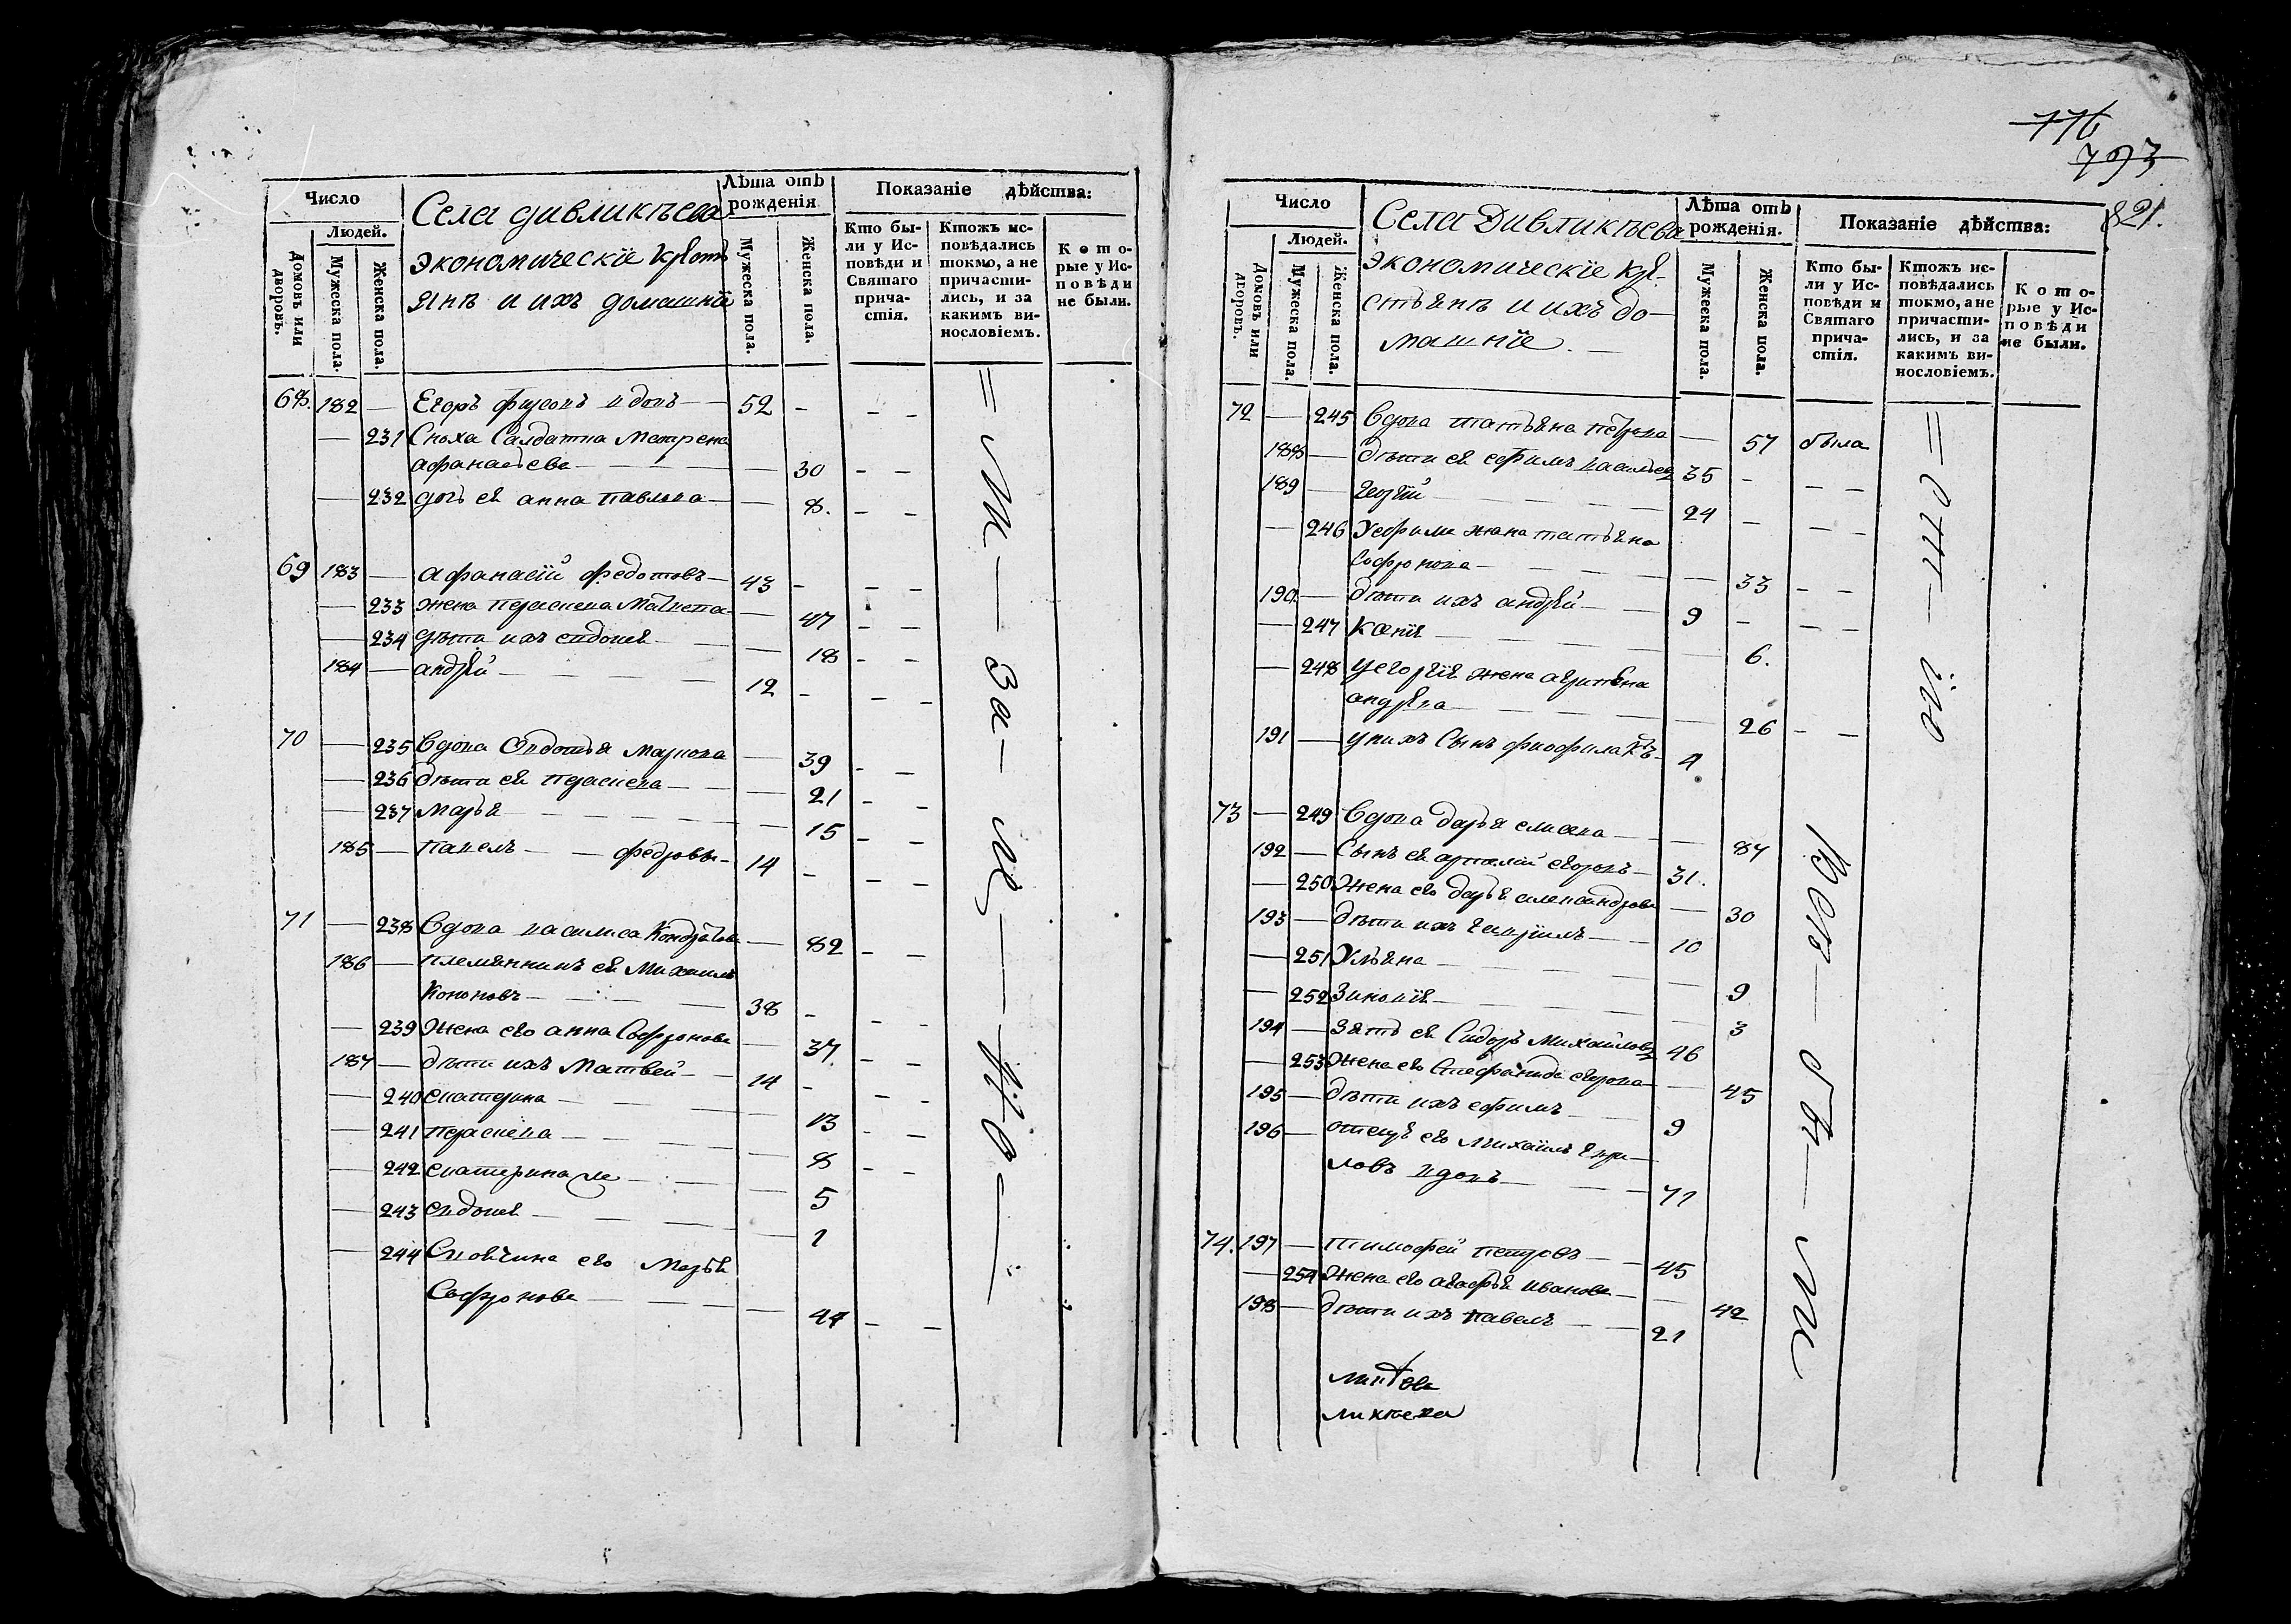 Число
Людей.
Домовъ или дворовъ.
Мужеска пола.
Женска пола.
Села дивликѣева
экономическіе крѣстъ
янѣ и ихъ домашніи
Лѣта отъ рожденія
Мужеска пола.
Женска пола.
Показаніе дѣйства:
Кто были у Исповѣди и Святаго причастія.
Ктожъ исповѣдались токмо, а не причастились, и за какимъ винословіемъ.
Которые у Исповѣди не были.
68. 182 — Егоръ вдовъ — 52
— 231 Сноха Салдатка Матрена
афанасьева — 30
— 232 дочь ея анна павлова — 8.
69 183 — афанасій федотовъ — 43
— 233 жена параскева — 47
— 234 дѣти ихъ евдокия — 18
184 — андрѣй — 12
70 — 235 вдова Овдотья маркова — 39
— 236 дѣти ея параскева — 21
— 237 марья — 15
185 — павелъ — федоровы — 14
71 — 238 вдова василиса Кондратова — 82
186 — племянникъ ея Михаилъ
Кононовъ — 38
— 239 жена его анна Софронова — 37
187 — дѣти ихъ Матвей — 14
— 240 екатерина — 13
— 241 параскева — 8
— 242 екатерина же — 5
— 243 евдокия — 1
— 244 Своячина его марья
Софронова — 44
776
793
821.
Число
Людей.
Домовъ или дворовъ.
Мужеска пола.
Женска пола.
Села Дивликѣева
экономическіе крѣ-
стьянѣ и ихъ до-
машніе. —
Лѣта отъ рожденія.
Мужеска пола.
Женска пола.
Показаніе дѣйства:
Кто были у Исповѣди и Святаго причастія.
Ктожъ исповѣдались токмо, а не причастились, и за какимъ винословіемъ.
Которые у Исповѣди не были.
72 — 245 вдова татьяна петрова — 57 была
188 — дѣти ея ефимъ васильевъ 35
189 — георгій — 24
— 246 Уефима жена татьяна
Софронова — 33
190 — дѣти ихъ андрѣй — 9
— 247 Ксенія — 6.
— 248 Уегоргія жена агрипѣна
андрѣева — 26
191 — у нихъ Сынъ феофилактъ — 4
73 — 249 вдова дарья — 84
192 — Сынъ ея егоровъ — 31.
— 250 Жена его дарья александрова — 30
193 — дѣти ихъ — 10
— 251 Ульяна — 9
— 252 Зиновія — 3
194 — Зять ея Сидоръ Михайловъ 46
— 253 Жена его Стефанида егорова — 45
195 — дѣти ихъ ефимъ — 9
196 — отецъ его Михаилъ Гаври-
ловъ вдовъ — 71
74. 197 — тимофей петровъ — 45
— 254 Жена его агафья иванова — 42
198 — дѣти ихъ павелъ — 21